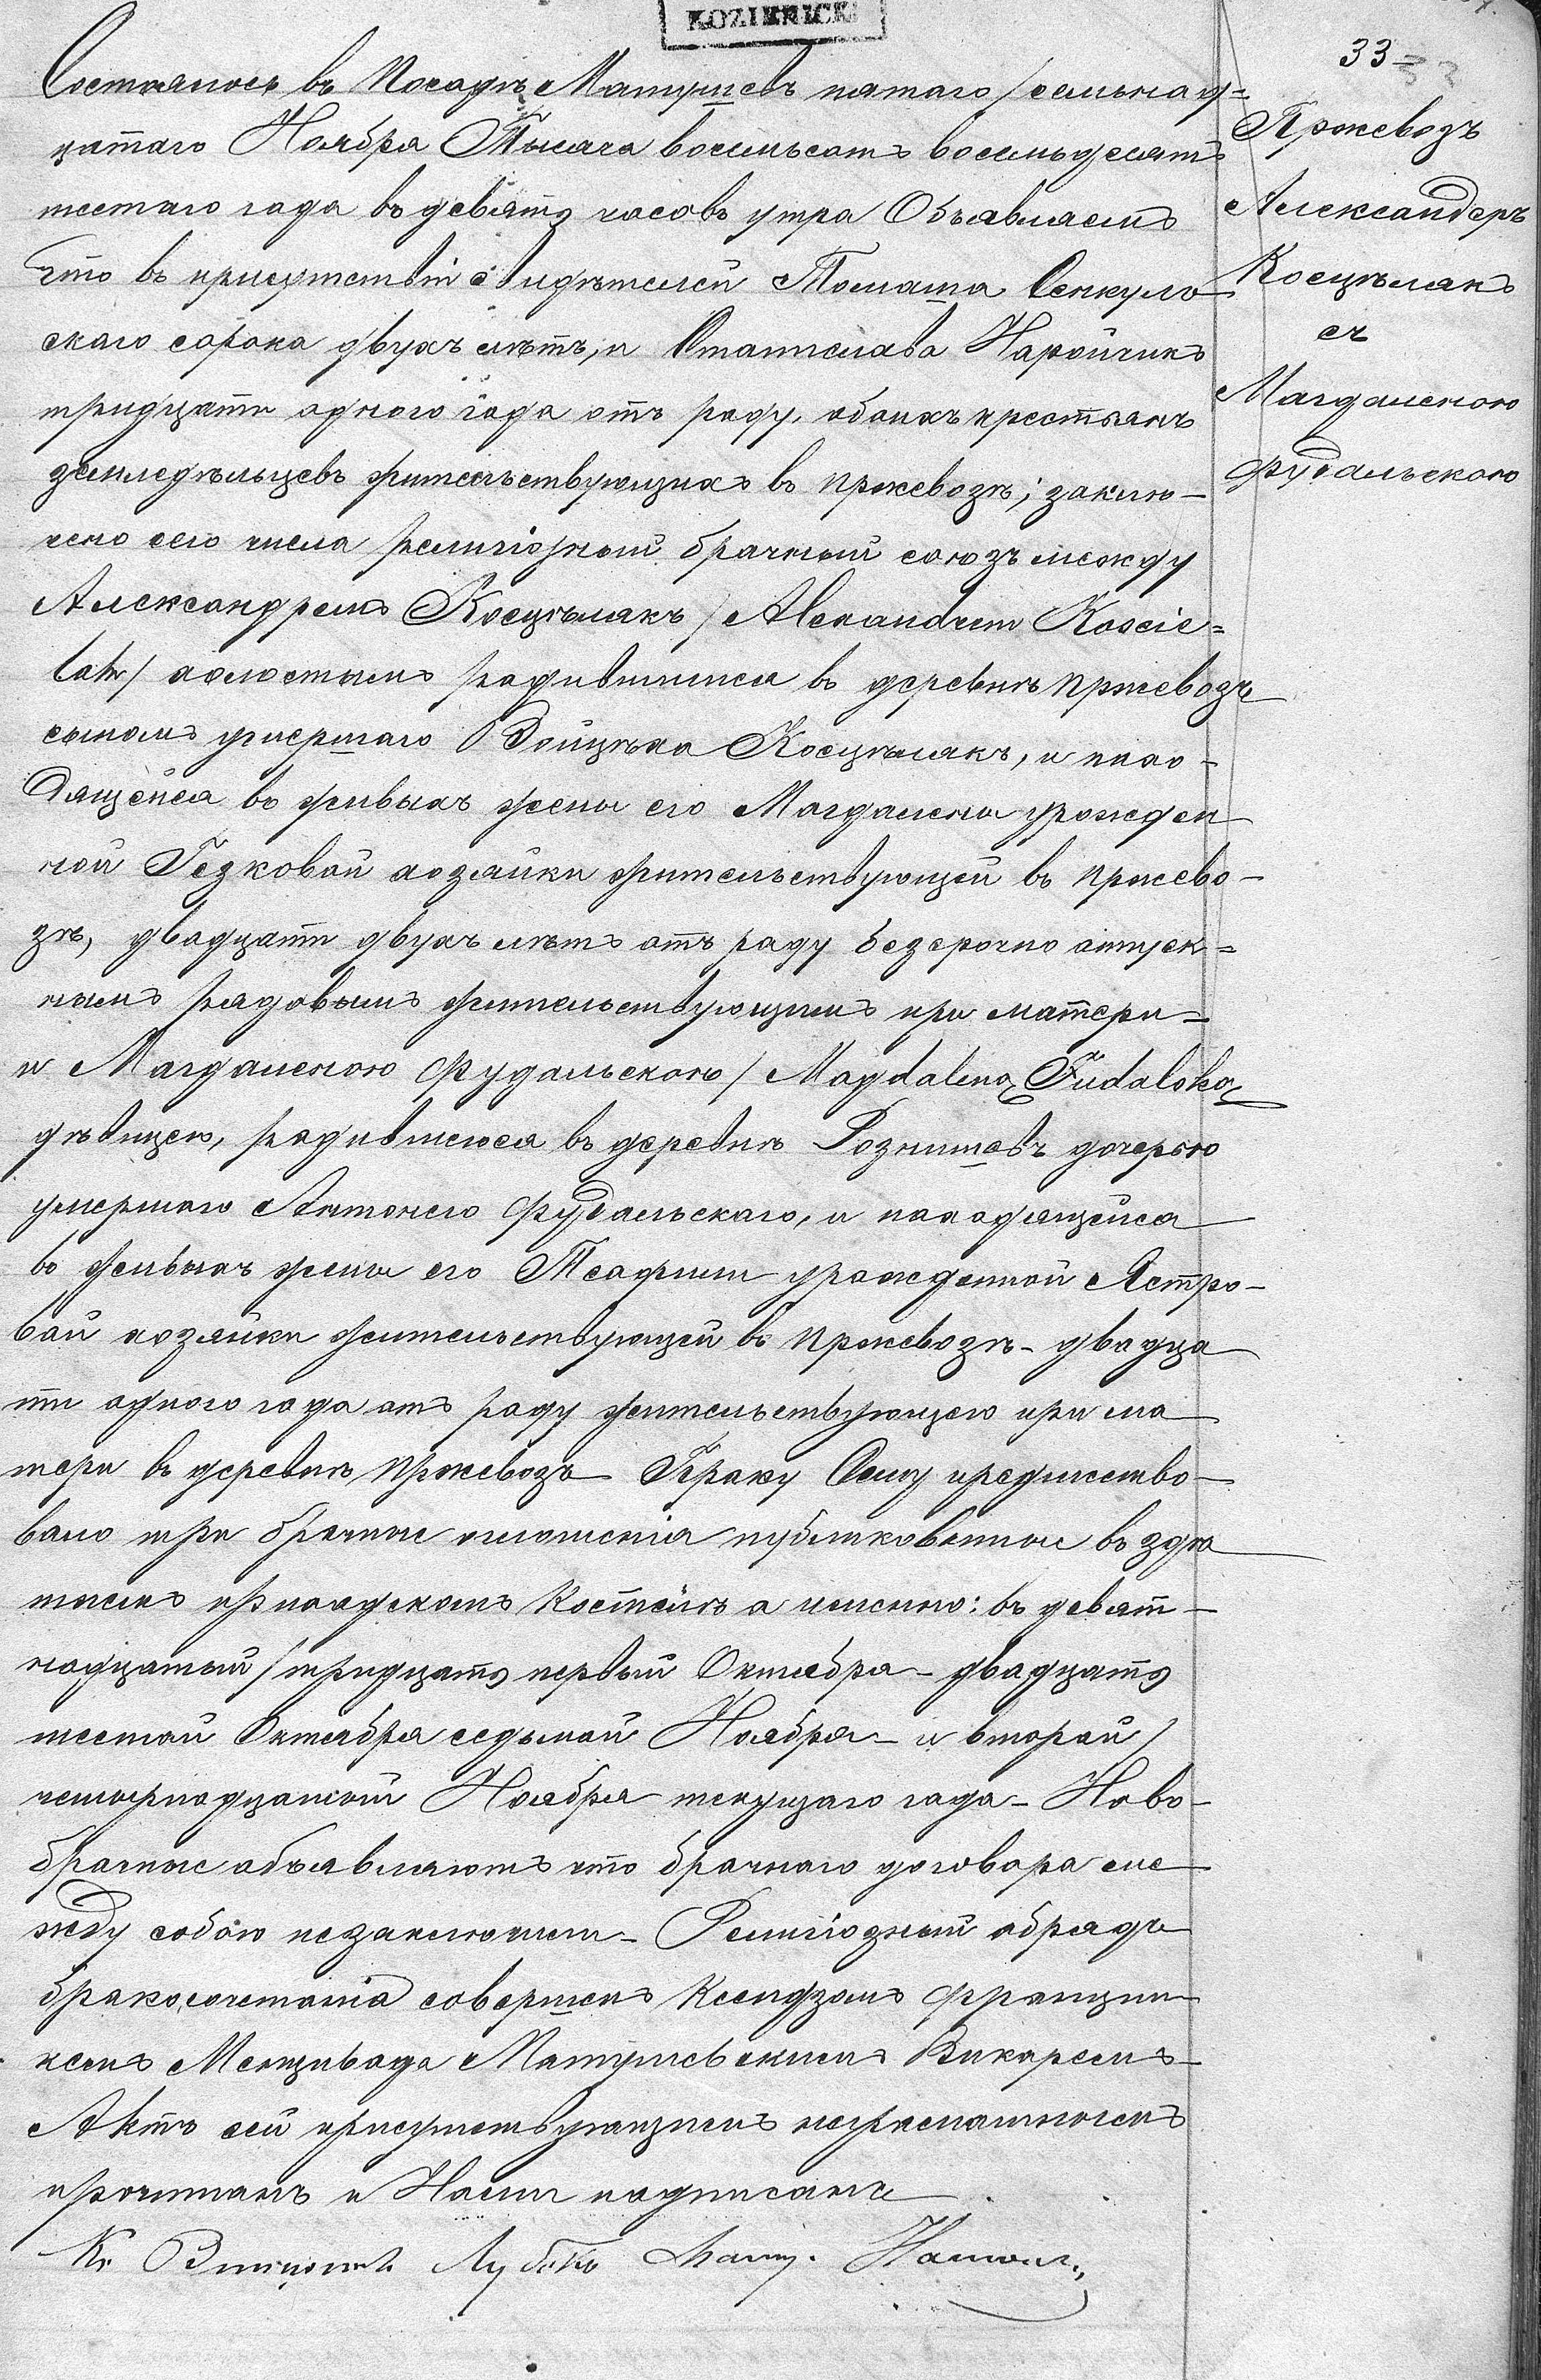 KOZIENICK
33
Состоялось въ Посадѣ Магнушевъ пятаго / семьнад=
цатаго Ноября Тысяча восемьсотъ восемьдесятъ
шестаго года въ девять часовъ утра Объявляемъ
что въ присутствіи свидѣтелей Томаша Секуло
скаго сорока двухъ лѣтъ, и Станислава Наройчикъ
тридцати одного года отъ роду, обоихъ крестьянъ
земледѣльцевъ жительствующихъ въ Пржевозѣ; заклю-
чено сего числа религіозный брачный союзъ между
Александремъ Косцѣлякъ / Alexandrem Koscie=
lak / холостымъ родившимся въ деревнѣ Пржевозъ
сыномъ умершаго Войцѣха Косцѣлякъ, и нахо-
дящейся въ живыхъ жены его Магдалены урожден
ной Гезковой хозяйки жительствующей въ Пржево-
зѣ, двадцати двухъ лѣтъ отъ роду безсрочно отпуск=
нымъ рядовымъ жительствующимъ при матери-
и Магдаленою Фудальскою / Magdaleną Fudalską
дѣвицею, родившеюся въ деревнѣ Рознишевъ дочерью
умершаго Антонего Фудальскаго, и находящейся
въ живыхъ жены его Теофили урожденной Ястро-
вой хозяйки жительствующей въ Пржевозѣ - двадца
ти одного года отъ роду жительствующею при ма
тери въ деревнѣ Пржевозъ Браку Сему предшество-
вало три брачные оглошенія публикованные въ здѣ
шнемъ приходскомъ Костёлѣ а именно: въ девят-
надцатый / тридцать первый Октября - двадцать
шестой Октября седьмой Ноября - и второй /
четырнадцатой Ноября текущаго года - Ново-
брачные объявляютъ что брачнаго договора ме
жду собою незаключили - Религіозный обрядъ
бракосочетанія совершенъ Ксендзомъ Францищ
комъ Магнушевскимъ Викаремъ -
Актъ сей присутствующимъ неграмотнымъ
прочитанъ и Нами подписанъ
Кс
Пржевозъ
Александеръ
Косцѣлякъ
съ
Магдаленою
Фудальскою